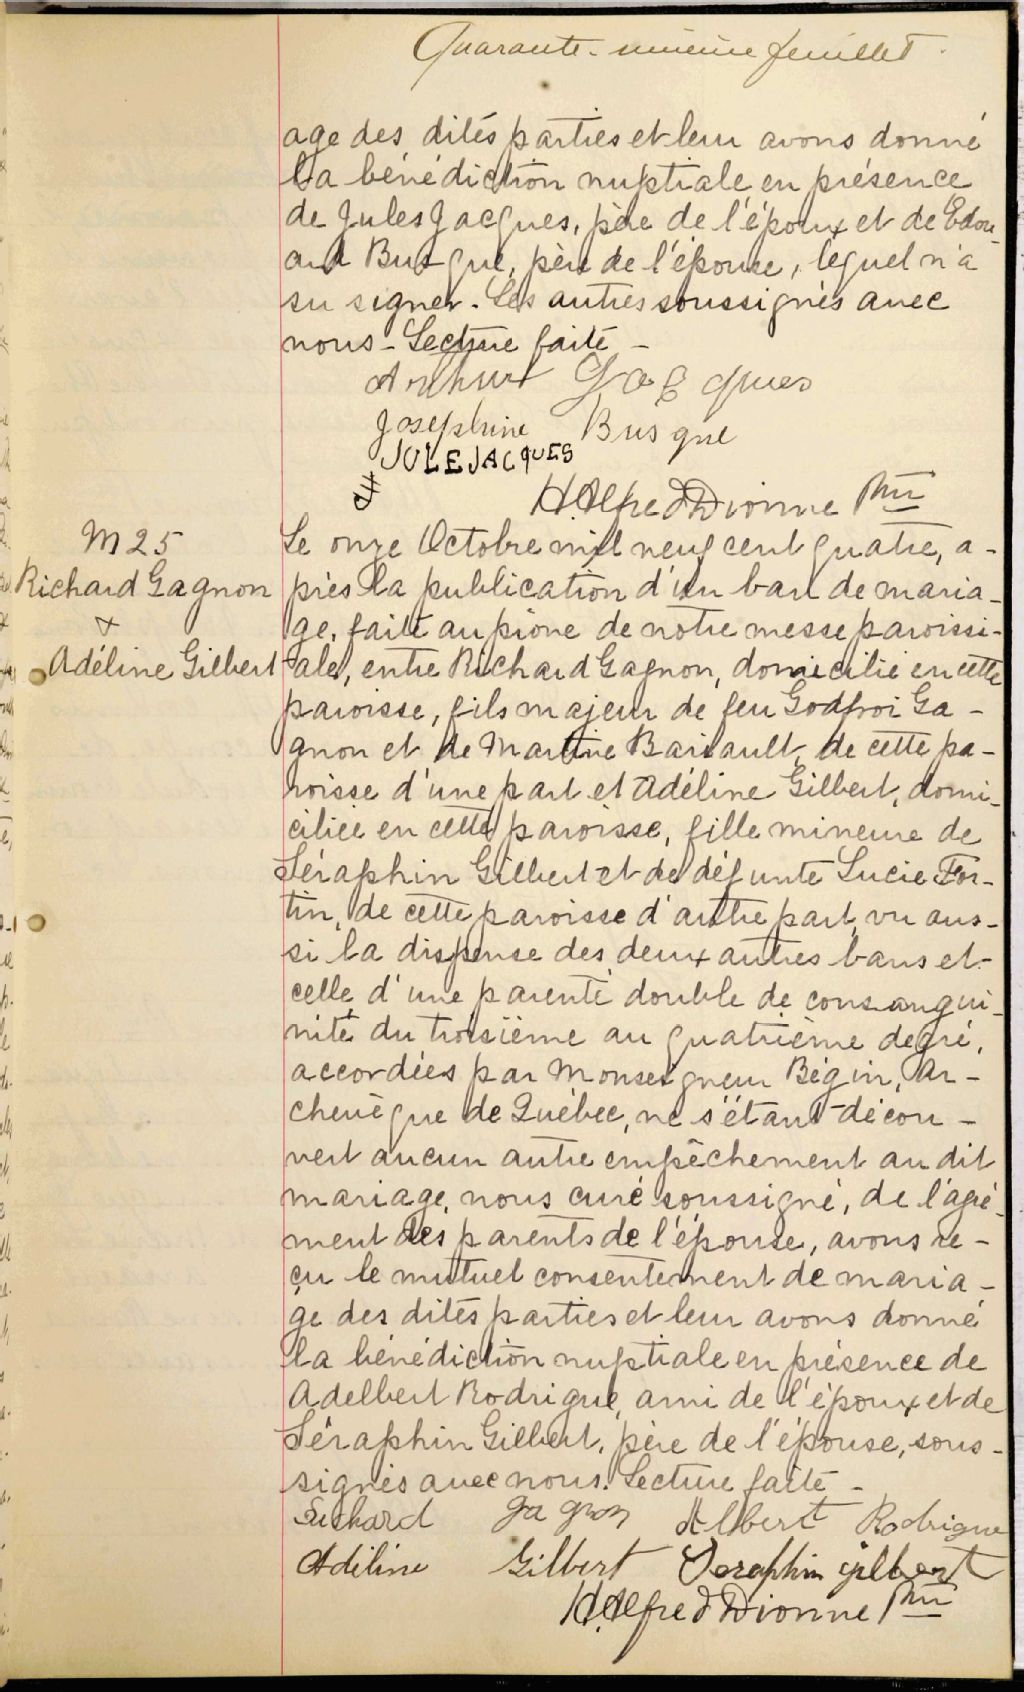 Quarante-unième feuillet.
age des dites parties et leur avons donné
la bénédiction nuptiale en présence
de Jules Jacques, père de l'époux et de Edou-
ard Busque, père de l'épouse, lequel n'a
su signer. Les autres soussignés avec
nous - Lecture faite -
Arthur Jacques
Josephine Busque
JULE JACQUES
H. Alfred Dionne Ptre
M 25
Richard Gagnon
&
Adéline Gilbert
Le onze Octobre mil neuf cent quatre, a-
près la publication d'un ban de maria-
ge, faite au prône de notre messe paroissi-
ale, entre Richard Gagnon, domicilié en cette
paroisse, fils majeur de feu Godfroi Ga-
gnon et de Martine Barsault, de cette pa-
roisse d'une part et Adéline Gilbert, domi-
ciliée en cette paroisse, fille mineure de
Séraphin Gilbert et de défunte Lucie For-
tin, de cette paroisse d'autre part, vu aus-
si la dispense des deux autres bans et
celle d'une parenté double de consangui-
nité du troisième au quatrième degré,
accordées par Monseigneur Bégin, Ar-
chevêque de Québec, ne s'étant décou-
vert aucun autre empêchement au dit
mariage, nous curé soussigné, de l'agré-
ment des parents de l'épouse, avons re-
çu le mutuel consentement de maria-
ge des dites parties et leur avons donné
la bénédiction nuptiale en présence de
Adelbert Rodrigue, ami de l'époux et de
Séraphin Gilbert, père de l'épouse, sous-
signés avec nous. Lecture faite -
Richard Gagnon Albert Rodrigue
Adéline Gilbert Seraphin gilbert
H. Alfred Dionne Ptre